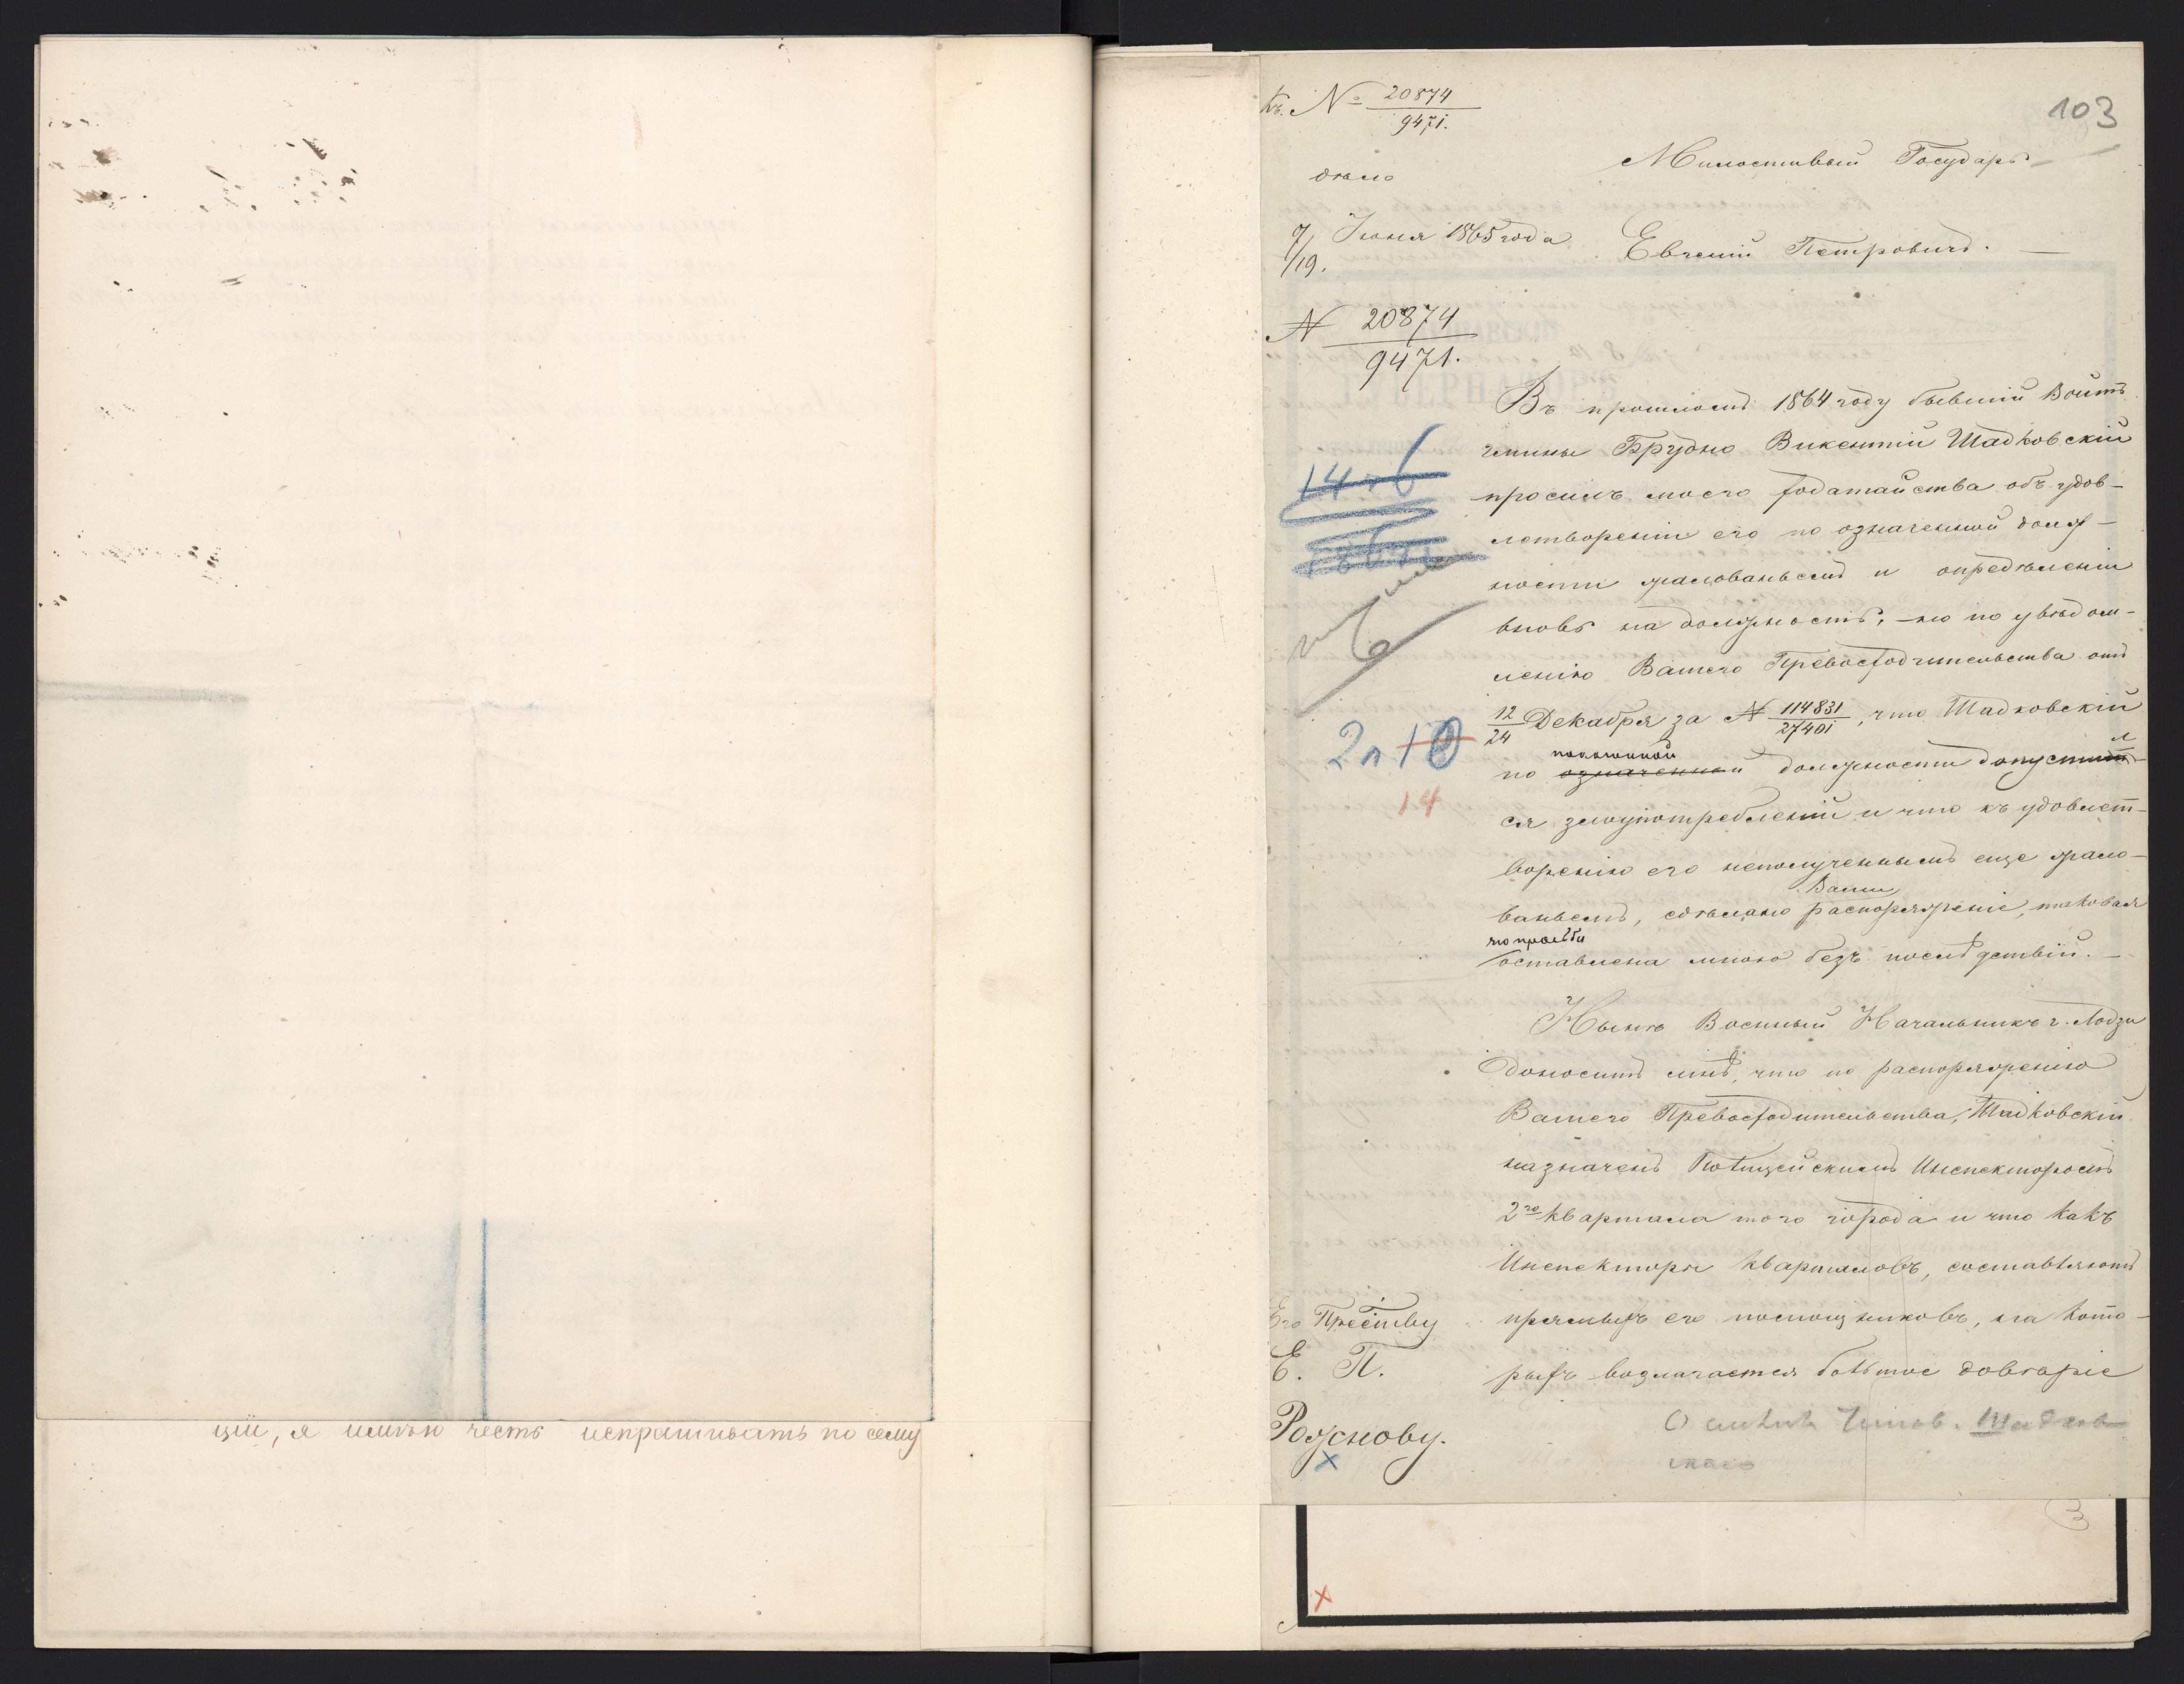 цiи, я имѣю честь испрашивать по сему
103
Къ № 20874/9471.
Милостивый Государь
дѣло
7/19. Iюня 1865 года
Евгенiй Петровичъ.
№ 20874/9471.
Въ прошломъ 1864 году бывшiй Войтъ
гмины Брудно Викентiй Шадковскiй
просилъ моего ходатайства объ удов-
летворенiи его по означенной долж-
ности жалованьемъ и опредѣленiи
вновь на должность, но по увѣдом-
ленiю Вашего Превосходительства отъ
12/24 Декабря за № 114831/27401, что Шадковскiй
по означенной должности допустилъ
ся злоупотребленiй и что къ удовлет-
воренiю его неполученнымъ еще жало-
Вами
ваньемъ, сдѣлано распоряженiе, таковая
его просьба
оставлена мною безъ послѣдствiй.
Нынѣ Военный Начальникъ г. Лодзи
доноситъ мнѣ, что по распоряженiю
Вашего Превосходительства, Шадковскiй
назначенъ Полицейскимъ Инспекторомъ
2го квартала того города и что какъ
Инспекторы кварталовъ, составляютъ
прямыхъ его помощниковъ, на кото-
рыхъ возлагается большое довѣрiе
Его Прес‑тву
Е. П.
Рожнову.
О смѣнѣ Чинов. Шадков
скаго
14